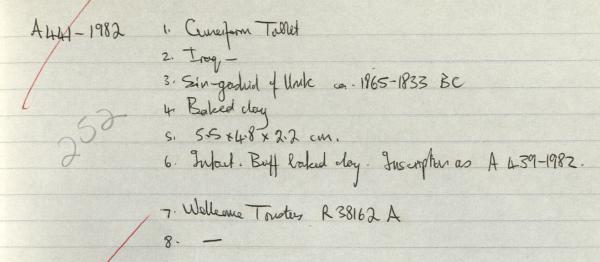 A441-1982 1. Cuneiform Tablet
2. Iraq -
3. Sin-gashid of Uruk ca. 1865-1833 BC
4. Baked clay
5. 5.5 x 4.8 x 2.2 cm.
6. Intact. Buff baked clay. Inscription as A 439-1982.
252
7. Wellcome Trustees R 38162 A
8. —